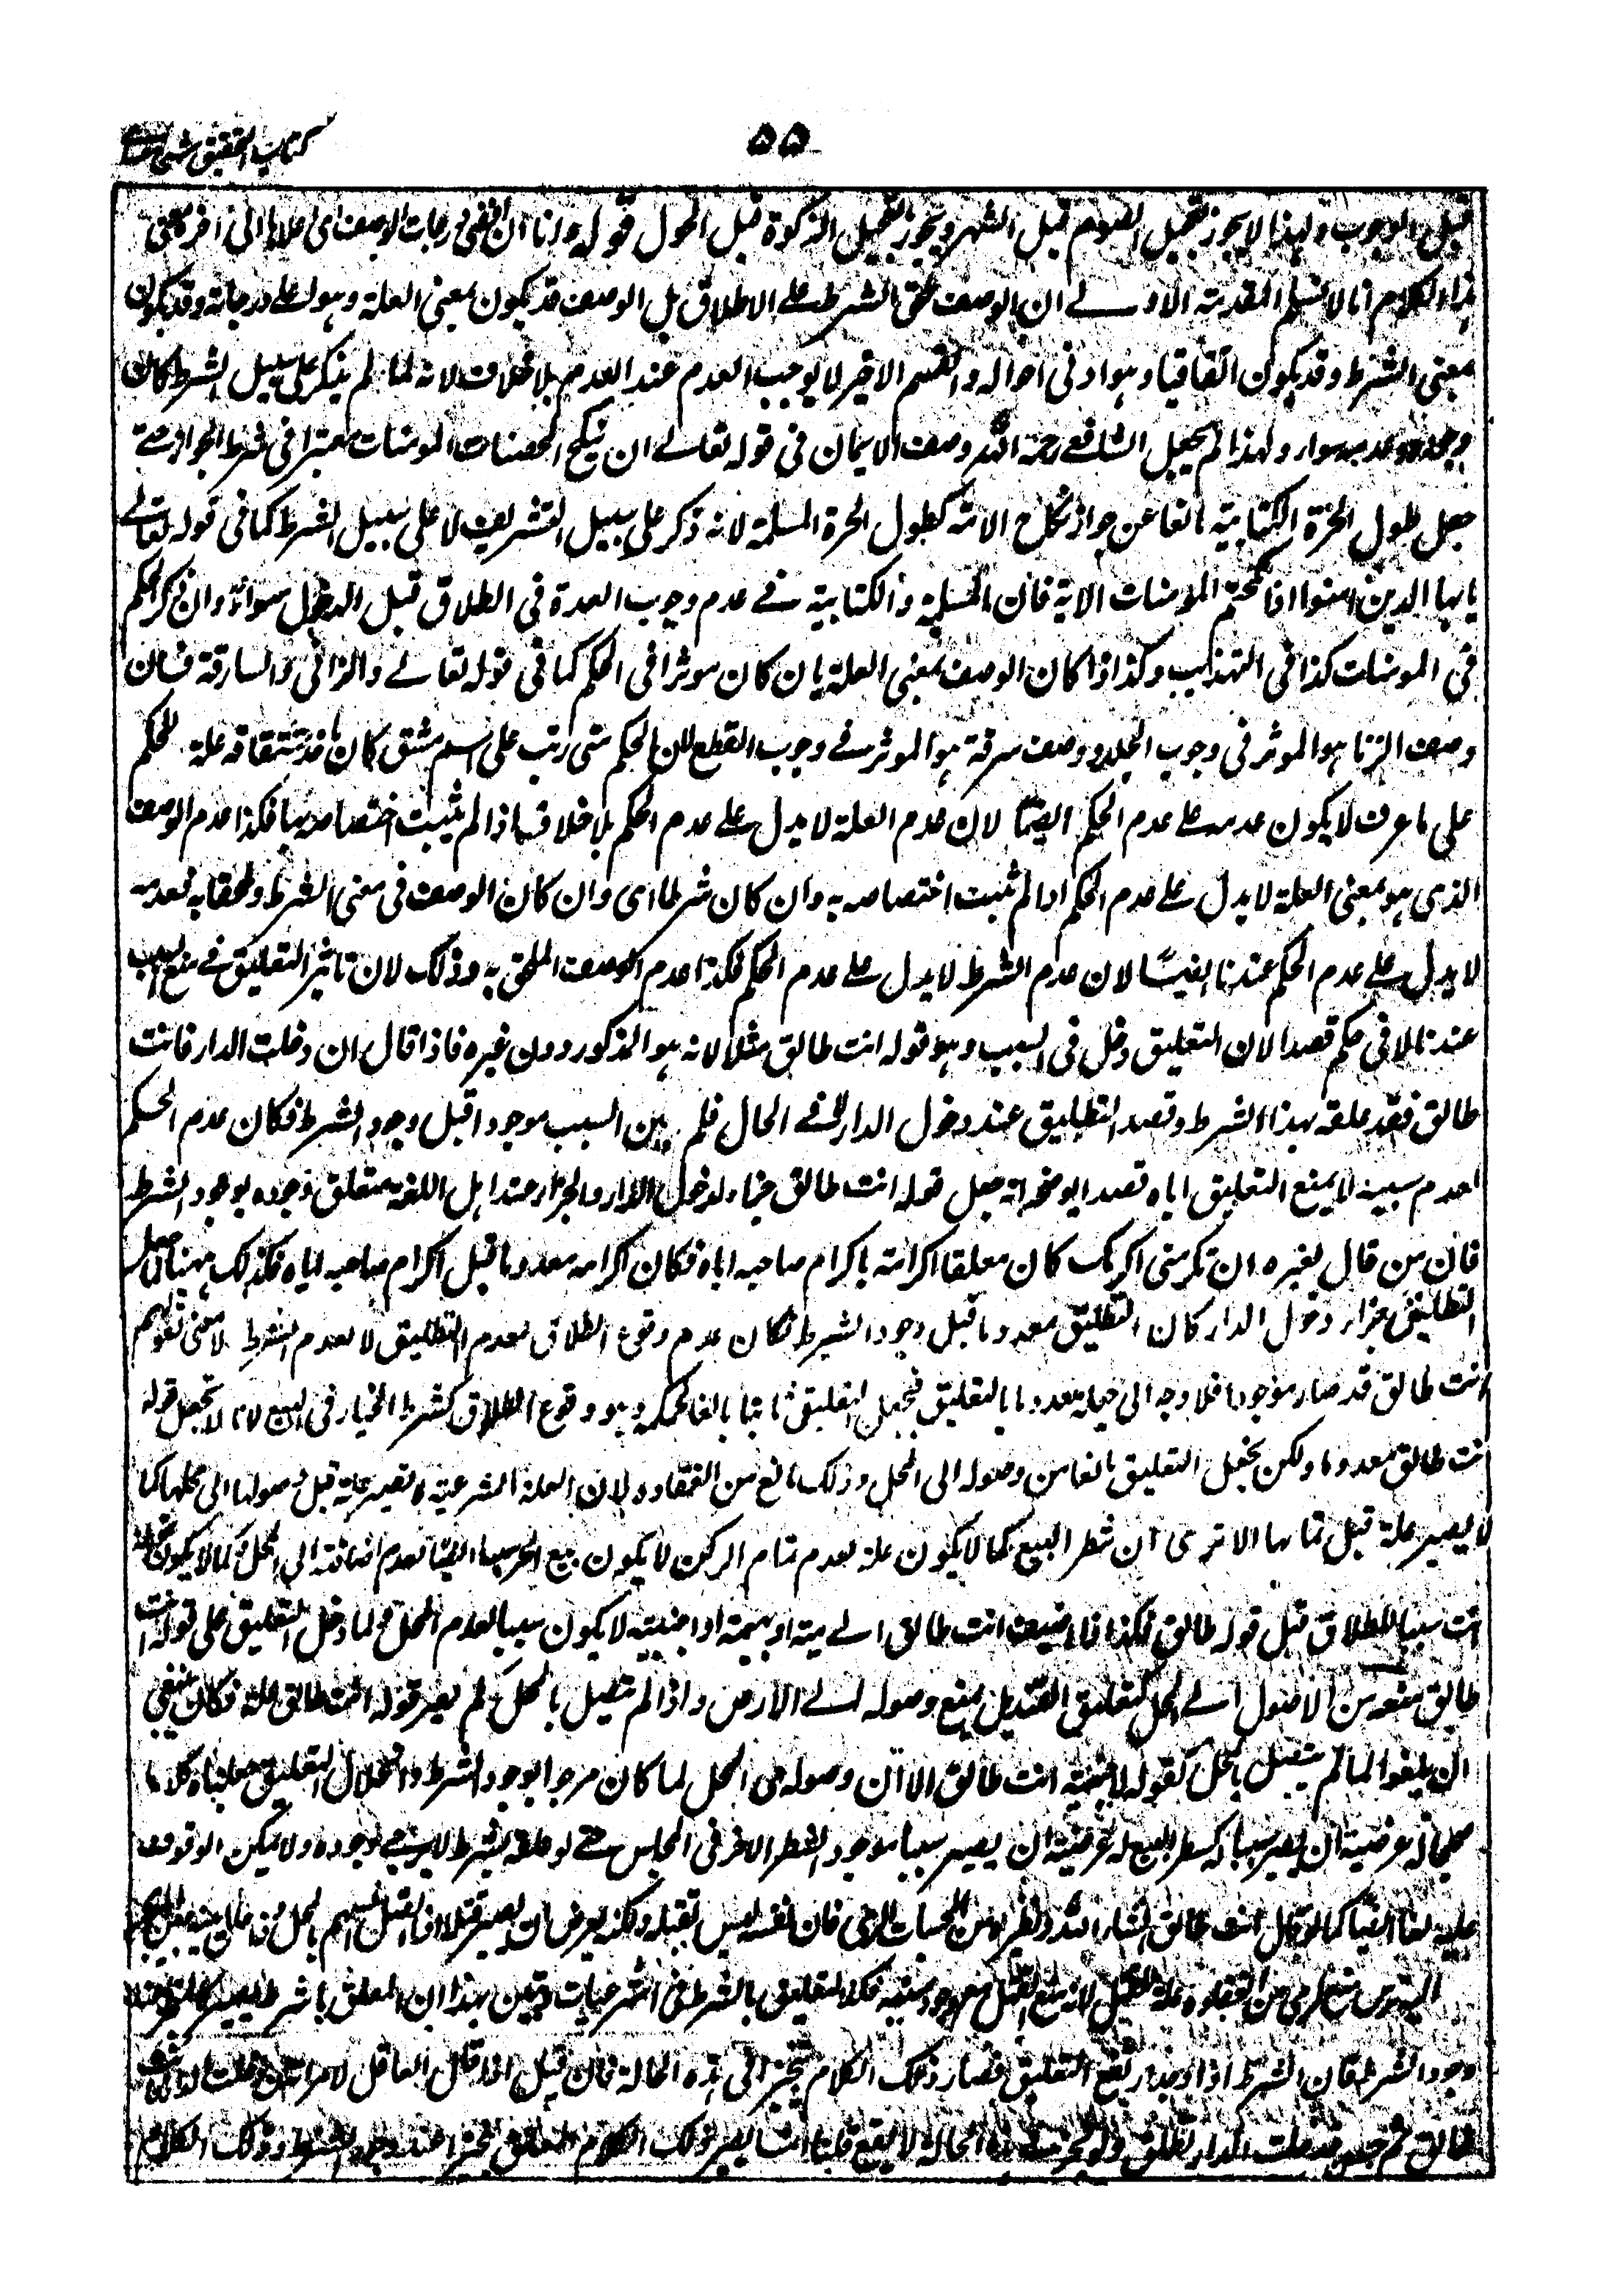 ۵۵
كتاب التحقيق شرح
قبل الوجوب ولهذا لا يجوز تعجيل الصوم قبل الشهر ويجوز تعجيل الزكوة قبل الحول قوله وانا ان اقصى درجات الوصف اى اعلاها الى اخره معنى
هذا الكلام انا لا نسلم المقدمة الاولى ان الوصف ملحق بالشرط على الاطلاق بل الوصف قد يكون بمعنى العلة وهو اعلى درجاته وقد يكون
بمعنى الشرط وقد يكون اتفاقيا وهو ادنى احواله والقسم الاخير لا يوجب العدم عند العدم بلا خلاف لانه لما لم يذكر على سبيل الشرط كان
وجوده وعدمه سواء ولهذا لم يجعل الشافعى رحمة الله وصف الايمان فى قوله تعالى ان ينكح المحصنات المومنات معتبرا فى شرط الجواز حتى
جعل طول الحرة الكتابية مانعا عن جواز نكاح الامة كطول الحرة المسلمة لانه ذكر على سبيل التشريف لا على سبيل الشرط كما فى قوله تعالى
يايها الذين امنوا اذا نكحتم المومنات الاية فان المسلمة والكتابية فى عدم وجوب العدة فى الطلاق قبل الدخول سواء وان ذكر الحكم
فى المومنات كذا فى التهذيب وكذا اذا كان الوصف بمعنى العلة بان كان موثرا فى الحكم كما فى قوله تعالى والزانى والسارقة فان
وصف الزنا هو الموثر فى وجوب الجلد ووصف سرقة هو الموثر فى وجوب القطع لان الحكم متى رتب على اسم مشتق كان ماخذ اشتقاقه علة للحكم
على ما عرف لا يكون عدمه على عدم الحكم ايضًا لان عدم العلة لا يدل على عدم الحكم بلا خلاف اذا لم يثبت اختصاصه بها فكذا عدم الوصف
الذى هو بمعنى العلة لا يدل على عدم الحكم اذا لم يثبت اختصاصه به وان كان شرطا اى وان كان الوصف فى معنى الشرط وملحقا به فعدمه
لا يدل على عدم الحكم عندنا ايضًا لان عدم الشرط لا يدل على عدم الحكم فكذا عدم الوصف الملحق به وذلك لان تاثير التعليق فى منع السبب
عندنا لا فى حكمه قصدا لان التعليق دخل فى السبب وهو قوله انت طالق مثلا لانه هو المذكور دون غيره فاذا قال ان دخلت الدار فانت
طالق فقد علقه بهذا الشرط وقصد التطليق عند دخول الدار لا فى الحال فلم يكن السبب موجودا قبل وجود الشرط فكان عدم الحكم
لعدم سببه لا بمنع التعليق اياه قصدا يوضحه انه جعل قوله انت طالق جزاء لدخول الدار والجزاء عند اهل اللغة متعلق وجوده بوجود الشرط
فان من قال لغيره ان تكرمنى اكرمك كان معلقا اكرامه باكرام صاحبه اياه فكان اكرامه معدوما قبل اكرام صاحبه اياه فكذلك ههنا لما جعل
التطليق جزاء دخول الدار كان التطليق معدوما قبل وجود الشرط فكان عدم وقوع الطلاق لعدم التطليق لا لعدم الشرط لا معنى لقولهم
انت طالق قد صار موجودا فلا وجه الى جعله معدوما بالتعليق فيجعل التعليق مانعا لحكمه وهو وقوع الطلاق كشرط الخيار فى البيع لانا لا نجعل قوله
انت طالق معدوما ولكن نجعل التعليق مانعا من وصوله الى المحل وذلك مانع من انعقاده لان العلة الشرعية لا تصير علة قبل وصولها الى محلها كما
لا يصير علة قبل تمامها الا ترى ان شطر البيع كما لا يكون علة لعدم تمام الركن لا يكون بيع الحر سببا ايضًا لعدم اضافته الى المحل وكما لا يكون قوله
انت سببا للطلاق قبل قوله طالق فكذا اذا اضيف انت طالق الى ميتة او بهيمة او اجنبية لا يكون سببا لعدم المحل ولما دخل التعليق على قوله انت
طالق منعه من الوصول الى المحل كتعليق القنديل يمنع وصوله الى الارض واذا لم يتصل بالمحل لم يصر قوله انت طالق علة فكان ينبغى
ان يلغو لما لم يتصل بالمحل كقوله لاجنبية انت طالق الا ان وصوله الى المحل لما كان مرجوا بوجود الشرط وانحلال التعليق جعلناه كلاما
صحيحا له عرضية ان يصير سببا كشطر البيع له عرضية ان يصير سببا بوجود الشطر الاخر فى المجلس حتى لو علقه بشرط لا يرجى وجوده ولا يمكن الوقوف
عليه لغا ايضًا كما لو قال انت طالق ان شاء الله ونظيره من الحسيات الرمى فان نفسه ليس بقتل ولكنه بعرض ان يصير قتلا اذا اتصل السهم بالمحل
وجود الشرط فان الشرط اذا وجد ارتفع التعليق فصار ذلك الكلام تنجيزا فى هذه الحالة فان قيل اذا قال العاقل لامراته ان دخلت الدار فانت
طالق ثم جن فدخلت الدار تطلق ولو نجز فى هذه الحالة لا يقع قلنا انما يصير ذلك الكلام المعلق تنجيزا عند وجود الشرط وذلك الكلام